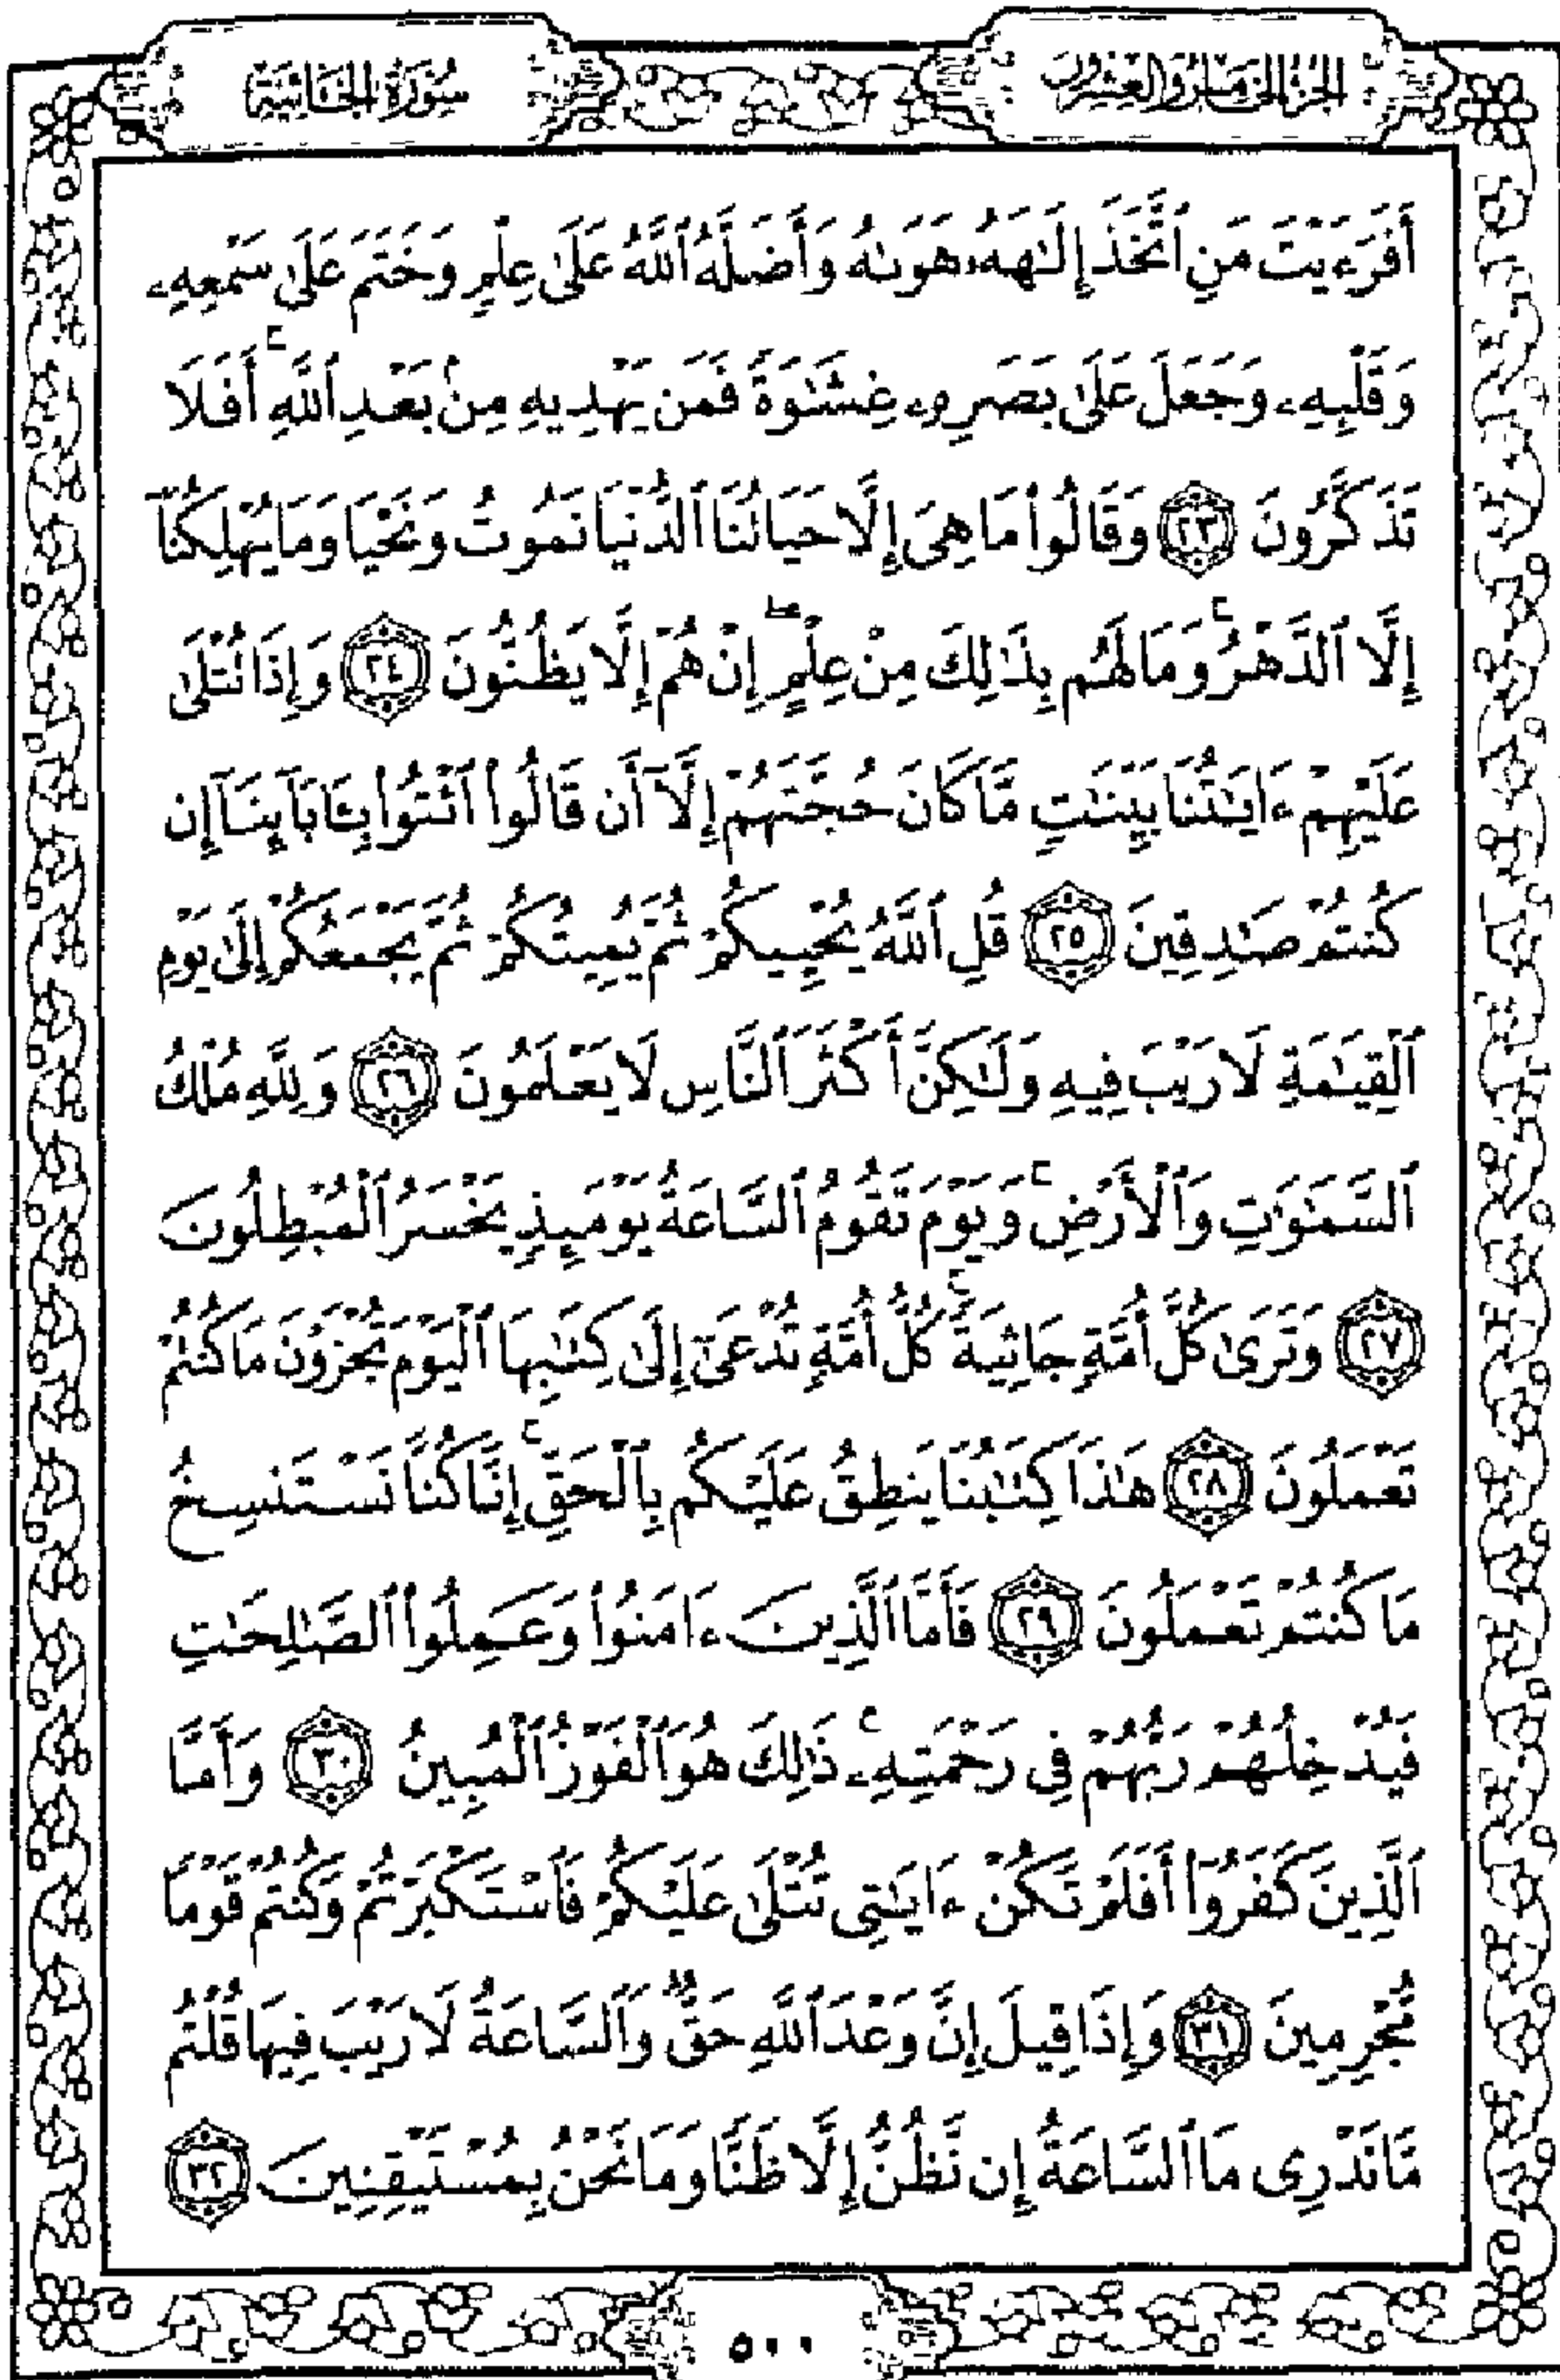 الجزء الخامس والعشرون
سُورَةُ الجَاثِيَةِ
أَفَرَءَيْتَ مَنِ ٱتَّخَذَ إِلَٰهَهُۥ هَوَىٰهُ وَأَضَلَّهُ ٱللَّهُ عَلَىٰ عِلْمٍ وَخَتَمَ عَلَىٰ سَمْعِهِۦ
وَقَلْبِهِۦ وَجَعَلَ عَلَىٰ بَصَرِهِۦ غِشَٰوَةً فَمَن يَهْدِيهِ مِنۢ بَعْدِ ٱللَّهِ ۚ أَفَلَا
تَذَكَّرُونَ ٢٣ وَقَالُوا۟ مَا هِىَ إِلَّا حَيَاتُنَا ٱلدُّنْيَا نَمُوتُ وَنَحْيَا وَمَا يُهْلِكُنَآ
إِلَّا ٱلدَّهْرُ ۚ وَمَا لَهُم بِذَٰلِكَ مِنْ عِلْمٍ ۖ إِنْ هُمْ إِلَّا يَظُنُّونَ ٢٤ وَإِذَا تُتْلَىٰ
عَلَيْهِمْ ءَايَٰتُنَا بَيِّنَٰتٍ مَّا كَانَ حُجَّتَهُمْ إِلَّآ أَن قَالُوا۟ ٱئْتُوا۟ بِـَٔابَآئِنَآ إِن
كُنتُمْ صَٰدِقِينَ ٢٥ قُلِ ٱللَّهُ يُحْيِيكُمْ ثُمَّ يُمِيتُكُمْ ثُمَّ يَجْمَعُكُمْ إِلَىٰ يَوْمِ
ٱلْقِيَٰمَةِ لَا رَيْبَ فِيهِ وَلَٰكِنَّ أَكْثَرَ ٱلنَّاسِ لَا يَعْلَمُونَ ٢٦ وَلِلَّهِ مُلْكُ
ٱلسَّمَٰوَٰتِ وَٱلْأَرْضِ ۚ وَيَوْمَ تَقُومُ ٱلسَّاعَةُ يَوْمَئِذٍ يَخْسَرُ ٱلْمُبْطِلُونَ
٢٧ وَتَرَىٰ كُلَّ أُمَّةٍ جَاثِيَةً ۚ كُلُّ أُمَّةٍ تُدْعَىٰٓ إِلَىٰ كِتَٰبِهَا ٱلْيَوْمَ تُجْزَوْنَ مَا كُنتُمْ
تَعْمَلُونَ ٢٨ هَٰذَا كِتَٰبُنَا يَنطِقُ عَلَيْكُم بِٱلْحَقِّ ۚ إِنَّا كُنَّا نَسْتَنسِخُ
مَا كُنتُمْ تَعْمَلُونَ ٢٩ فَأَمَّا ٱلَّذِينَ ءَامَنُوا۟ وَعَمِلُوا۟ ٱلصَّٰلِحَٰتِ
فَيُدْخِلُهُمْ رَبُّهُمْ فِى رَحْمَتِهِۦ ۚ ذَٰلِكَ هُوَ ٱلْفَوْزُ ٱلْمُبِينُ ٣٠ وَأَمَّا
ٱلَّذِينَ كَفَرُوٓا۟ أَفَلَمْ تَكُنْ ءَايَٰتِى تُتْلَىٰ عَلَيْكُمْ فَٱسْتَكْبَرْتُمْ وَكُنتُمْ قَوْمًا
مُّجْرِمِينَ ٣١ وَإِذَا قِيلَ إِنَّ وَعْدَ ٱللَّهِ حَقٌّ وَٱلسَّاعَةُ لَا رَيْبَ فِيهَا قُلْتُم
مَّا نَدْرِى مَا ٱلسَّاعَةُ إِن نَّظُنُّ إِلَّا ظَنًّا وَمَا نَحْنُ بِمُسْتَيْقِنِينَ ٣٢
٥٠٠